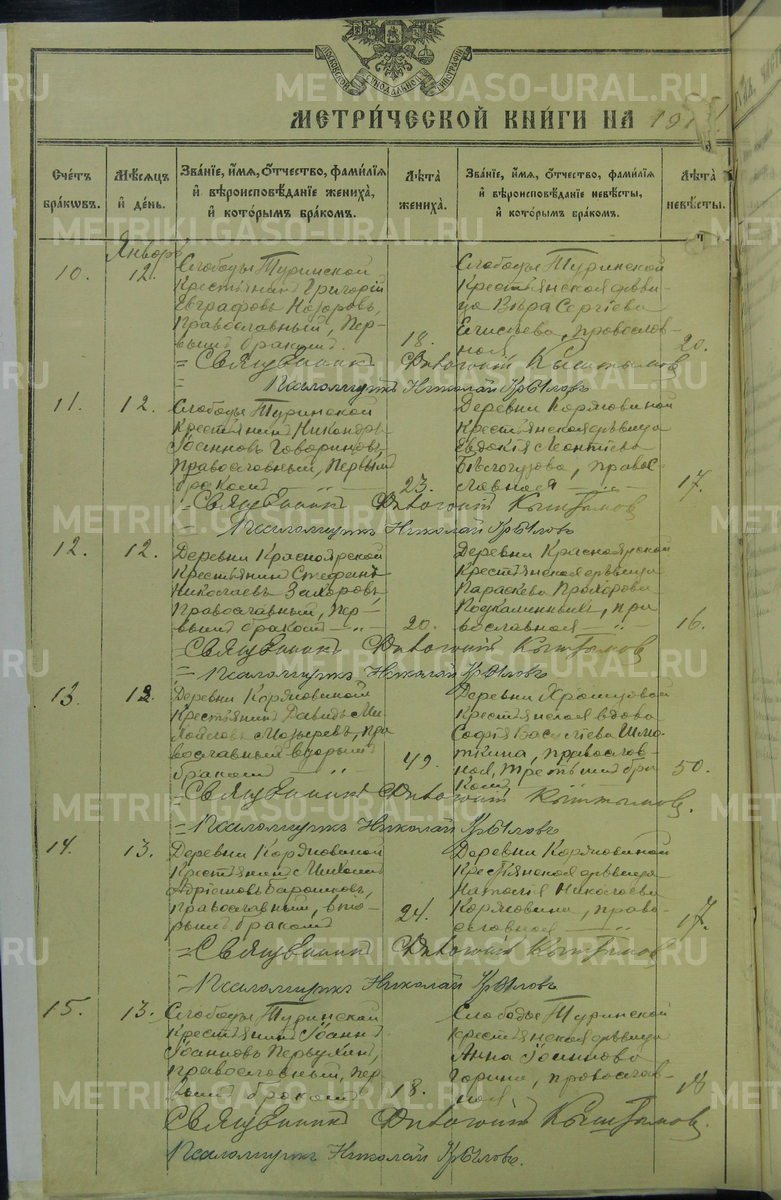 МОСКОВСКОЙ СУНОДАЛЬНОЙ ТИПОГРАФІИ
МЕТРИ́ЧЕСКОЙ КНИ́ГИ НА 191
Сче́тъ бра́кѡвъ.
Мѣ́сяцъ и҆ де́нь.
Зва́ніе, и҆́мя, ѻ҆́тчество, фами́лія и҆ вѣроисповѣ́даніе жениха́, и҆ кото́рымъ бра́комъ.
Лѣ́та жениха́.
Зва́ніе, и҆́мя, ѻ҆́тчество, фами́лія и҆ вѣроисповѣ́даніе невѣ́сты, и҆ кото́рымъ бра́комъ.
Лѣ́та невѣ́сты.
Январь
10.
12.
Слободы Туринской
крестьянинъ Григорій
Евграфовъ Назаровъ,
православный, пер-
вымъ бракомъ
18.
Слободы Туринской
крестьянская дѣви-
ца Вѣра Сергіева
Елисѣева, православ-
ная
20.
= Священникъ Кыштымовъ
= Псаломщикъ Николай Крыловъ
11.
12.
Слободы Туринской
крестьянинъ Никандръ
Іоанновъ Говоринъ,
православный, первымъ
бракомъ
23.
Деревни Коряковиной
крестьянская дѣвица
Евдокія Леонтіева
Бѣлогузова, право-
славная
17.
= Священникъ Кыштымовъ
= Псаломщикъ Николай Крыловъ
12.
12.
Деревни Красноярской
крестьянинъ Стефанъ
Николаевъ Захаровъ
православный, пер-
вымъ бракомъ
20.
Деревни Красноярской
крестьянская дѣвица
Параскева Прохорова
Подкаменныхъ, пра-
вославная
16.
= Священникъ Кыштымовъ
= Псаломщикъ Николай Крыловъ
13.
12.
Деревни Коряковиной
крестьянинъ Давидъ Ми-
хайловъ Мозыревъ, пра-
вославный вторымъ
бракомъ
49.
Деревни
крестьянская вдова
Софія Васильева
православ-
ная, третьимъ бра-
комъ
50.
= Священникъ Кыштымовъ.
= Псаломщикъ Николай Крыловъ
14.
13.
Деревни Коряковиной
крестьянинъ Михаилъ
Адріановъ
православный, вто-
рымъ бракомъ
24.
Деревни Коряковиной
крестьянская дѣвица
Наталія Николаева
Корякина, право-
славная
17.
= Священникъ Кыштымовъ
= Псаломщикъ Николай Крыловъ
15.
13.
Слободы Туринской
крестьянинъ Іоаннъ
Іоанновъ Первухинъ,
православный, пер-
вымъ бракомъ
18.
Слободы Туринской
крестьянская дѣвица
Анна Іоаннова
Горина, православ-
ная
18
Священникъ Кыштымовъ.
Псаломщикъ Николай Крыловъ.
METRIKI.GASO-URAL.RU